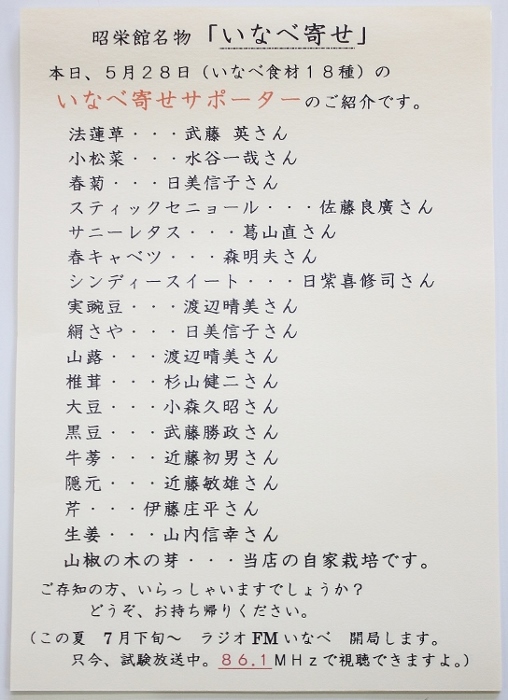 昭栄館名物「いなべ寄せ」
本日、５月２８日（いなべ食材１８種）の
いなべ寄せサポーターのご紹介です。
法蓮草・・・武藤 英さん
小松菜・・・水谷一哉さん
春菊・・・日美信子さん
スティックセニョール・・・佐藤良廣さん
サニーレタス・・・葛山直さん
春キャベツ・・・森明夫さん
シンディースイート・・・日紫喜修司さん
実豌豆・・・渡辺晴美さん
絹さや・・・日美信子さん
山蕗・・・渡辺晴美さん
椎茸・・・杉山健二さん
大豆・・・小森久昭さん
黒豆・・・武藤勝政さん
牛蒡・・・近藤初男さん
隠元・・・近藤敏雄さん
芹・・・伊藤庄平さん
生姜・・・山内信幸さん
山椒の木の芽・・・当店の自家栽培です。
ご存知の方、いらっしゃいますでしょうか？
どうぞ、お持ち帰りください。
（この夏　７月下旬～　ラジオFMいなべ　開局します。
只今、試験放送中。８６.１ＭＨｚで視聴できますよ。）